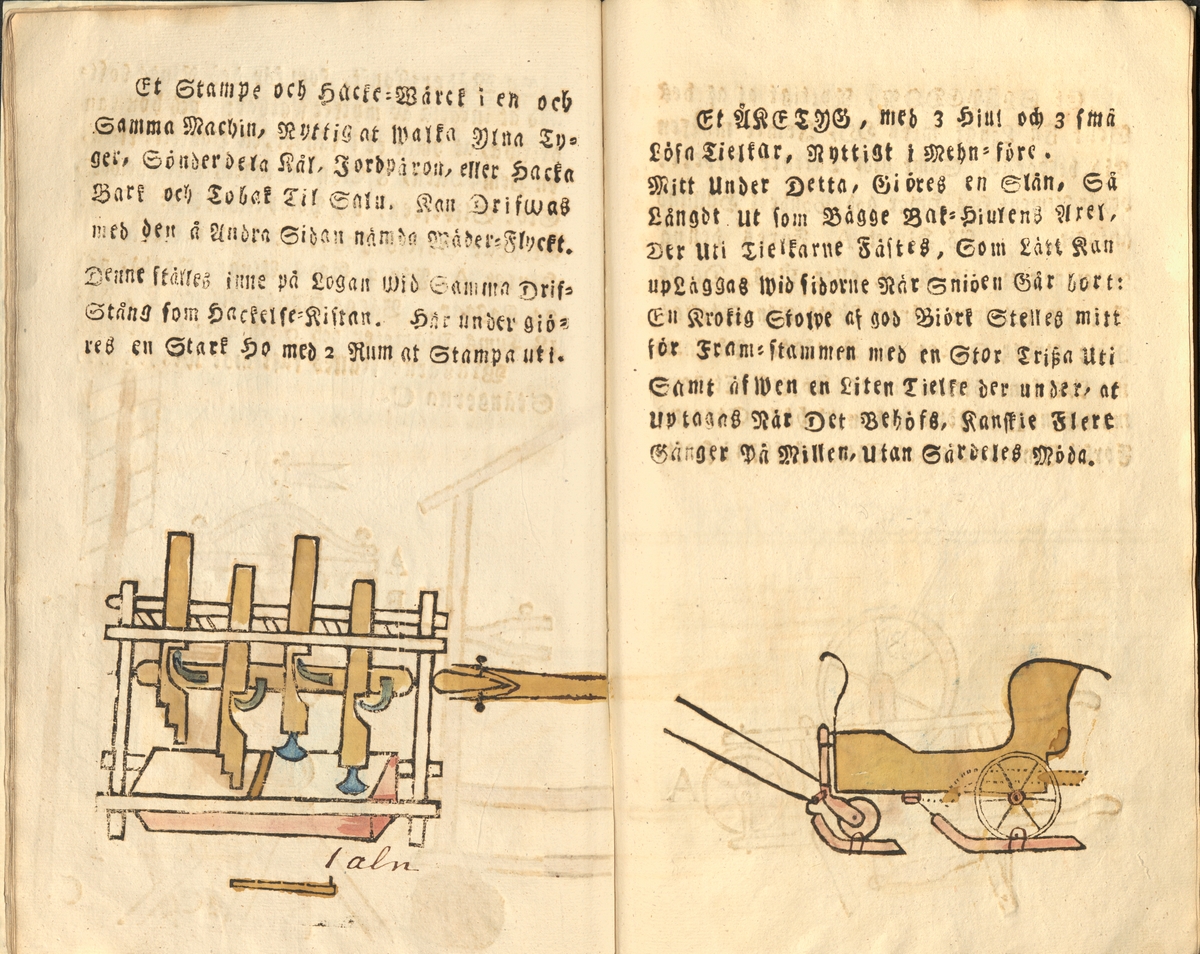 Et Stampe och Hacke=Wärck i en och
Samma Machin, Nyttig at Walka Ylna Ty=
ger, Sönderdela Kål, Jordpäron, eller Hacka
Bark och Tobak Til Salu. Kan Drifwas
med den å Andra Sidan nämda Wäder=Flyckt.
Denne ställes inne på Logan Wid Samma Drif=
Stång som Hackelse=Kistan. Här under giö=
res en Stark Ho med 2 Rum at Stampa uti.
1 aln
Et ÅKETYG, med 3 Hiul och 3 små
Lösa Tielkar, Nyttigt i Mehn=före.
Mitt Under Detta, Giöres en Slån, Så
Långdt ut som Bägge Bak=Hiulens Axel,
Der Uti Tielkarne Fästes, Som Lätt Kan
upLäggas Wid sidorne När Sniöen Går bort:
En Krokig Stolpe af god Biörk Stelles mitt
för Fram=stammen med en Stor Trißa Uti
Samt äfWen en Liten Tielke der under, at
Uptagas När Det Behöfs, Kanskie Flere
Gånger På Millen, Utan Särdeles Möda.